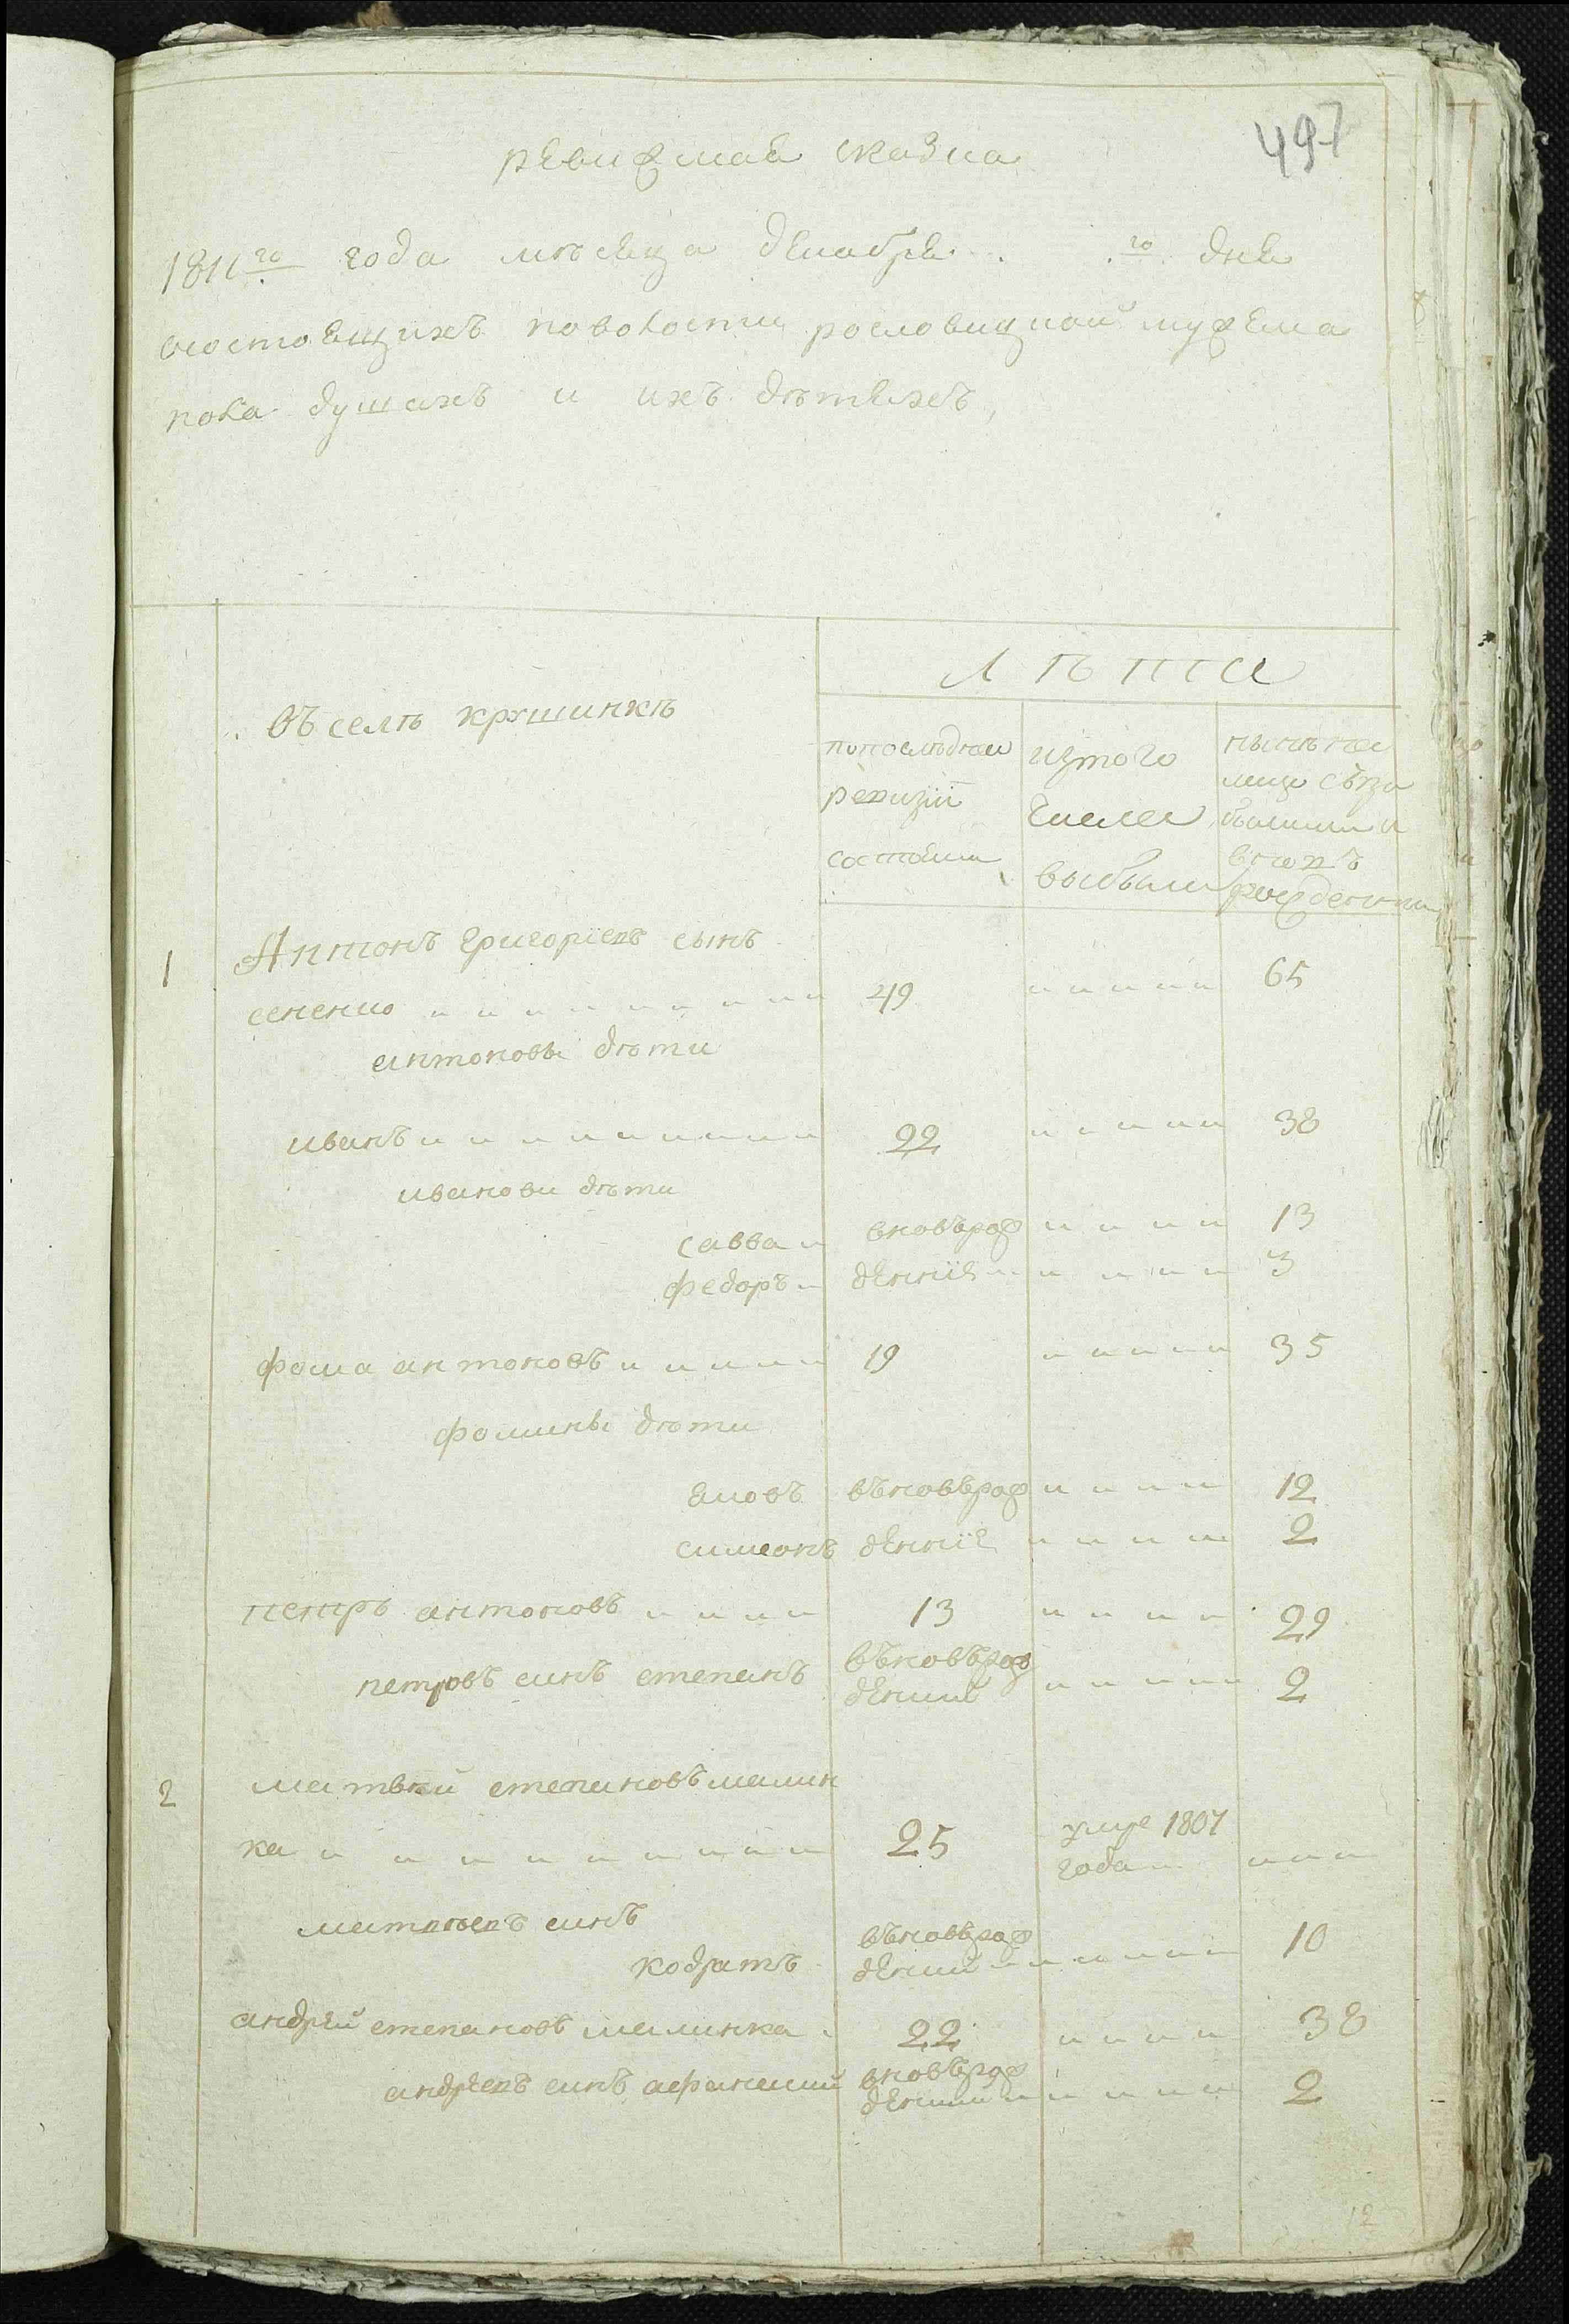 497
ревизская сказка
1811го года месяца декабря го дня
состоящихъ по волости мужеска
пола душахъ и ихъ дѣтяхъ,
лѣта
въ селѣ крушинкѣ
по последней ревизіи состояли
изъ того числа выбыли
нынѣ на лицо съ прибылыми и вновь рожденными
1 Антонъ григоріевъ сынъ
сененко 49 65
антоновы дѣти
иванъ 22 38
иванови дѣти
савва вновьрож 13
федоръ деніе 3
фома антоновъ 19 35
фомины дѣти
яковъ въновьрож 12
симеонъ деніе 2
петръ антоновъ 13 29
петровъ синъ степанъ въновьрожденій 2
2 матвѣй степановъ малин
ка 25 умре 1807 года
матвѣевъ синъ
кодратъ въновьрожденій 10
андрей степановъ малинка 22 38
андреевъ синъ афанасий вновьрожденій 2
12